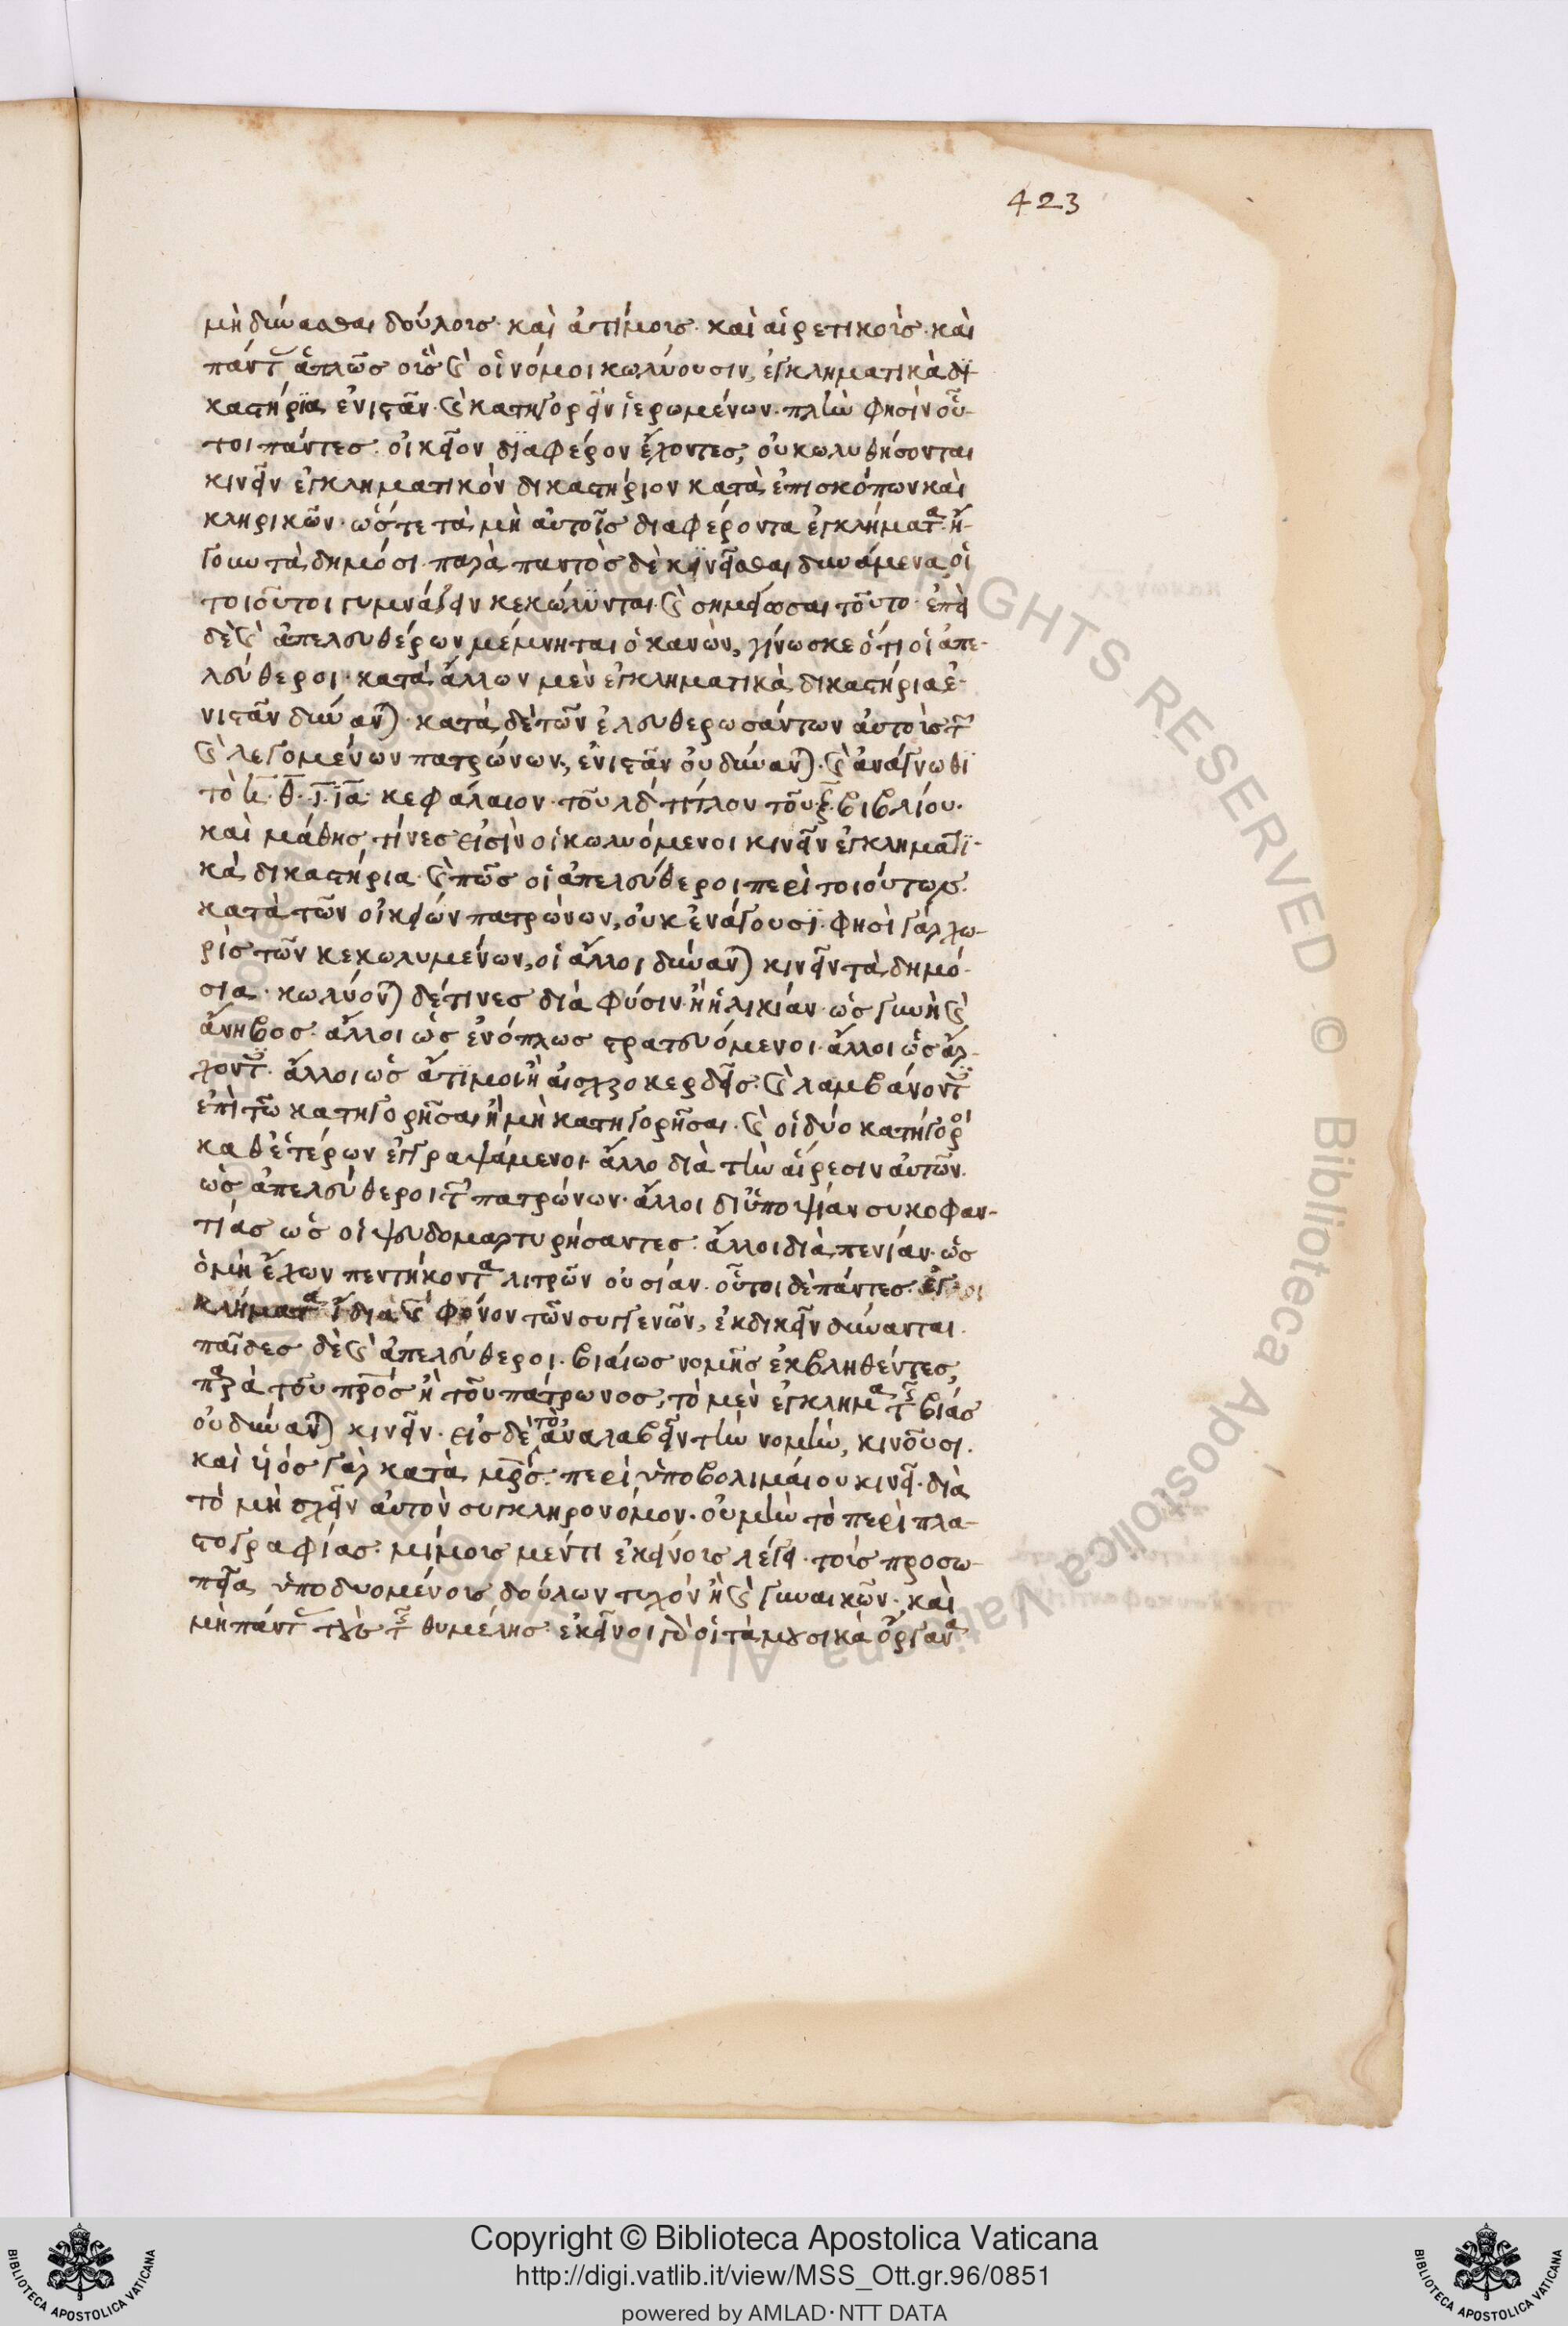 423
μὴ δύνασθαι δούλοις· καὶ ἀτίμοις· καὶ αἱρετικοῖς· καὶ
πάντ ἁπλῶς οἷς καὶ οἱ νόμοι κωλύουσιν, ἐγκληματικὰ δι
καστήρια ἐνιστᾶν· καὶ κατηγορεῖν ἱερωμένων· πλὴν φησὶν οὗ-
τοι πάντες· οἰκεῖον διαφέρον ἔχοντες, οὐ κωλυθήσονται
κινεῖν ἐγκληματικὸν δικαστήριον κατὰ ἐπισκόπων καὶ
κληρικῶν· ὥστε τὰ μὴ αὐτοῖς διαφέροντα ἐγκλήματα· ἤ-
γουν τὰ δημόσι· παρὰ παντὸς δὲ κινεῖσθαι δυνάμενα, οἱ
τοιοῦτοι γυμνάζειν κεκώλυνται· καὶ σημείωσαι τοῦτο· ἐπεὶ
δὲ καὶ ἀπελευθέρων μέμνηται ὁ κανὼν, γίνωσκε ὅτι οἱ ἀπε-
λεύθεροι· κατὰ ἄλλων μὲν ἐγκληματικὰ δικαστήρια ἐ-
νιστᾶν δύναν· κατὰ δὲ τῶν ἐλευθερωσάντων αὐτοὺς τ
καὶ λεγομένων πατρώνων, ἐνιστᾶν οὐ δύναν· καὶ ἀνάγνωθι
τὸ η· θ· ι· ια· κεφάλαιον· τοῦ λδ τίτλου τοῦ ξ βιβλίου·
καὶ μάθης τίνες εἰσὶν οἱ κωλυόμενοι κινεῖν ἐγκληματι-
κὰ δικαστήρια· καὶ πῶς οἱ ἀπελεύθεροι περὶ τοιούτων·
κατὰ τῶν οἰκείων πατρώνων, οὐκ ἐνάγουσι· φησὶ γὰρ χω-
ρὶς τῶν κεκωλυμένων, οἱ ἄλλοι δύναν κινεῖν τὰ δημό-
σια· κωλύον δέ τινες διὰ φύσιν ἢ ἡλικίαν· ὡς γυνὴ καὶ
ἄνηβος· ἄλλοι ὡς ἐνόπλως στρατευόμενοι· ἄλλοι ὡς ἄρ-
χοντ· ἄλλοι ὡς ἄτιμοι ἢ αἰσχροκερδεῖς· καὶ λαμβάνοντ
ἐπὶ τῷ κατηγορῆσαι ἢ μὴ κατηγορῆσαι· καὶ οἱ δύο κατήγορ
καθ ἑτέρων ἐγγραψάμενοι· ἄλλο διὰ τὴν αἵρεσιν αὐτῶν·
ὡς ἀπελεύθεροι τ πατρώνων· ἄλλοι δι ὑποψίαν συκοφαν-
τίας ὡς οἱ ψευδομαρτυρήσαντες· ἄλλοι διὰ πενίαν· ὡς
ὁ μὴ ἔχων πεντήκοντα λιτρῶν οὐσίαν· οὗτοι δὲ πάντες·
κλήματα ἴδια καὶ φόνον τῶν συγγενῶν, ἐκδικεῖν δύνανται·
παῖδες δὲ καὶ ἀπελεύθεροι· βιαίως νομῆς ἐκβληθέντες,
παρὰ τοῦ προς ἢ τοῦ πάτρωνος, τὸ μὲν ἐγκλημα τ βίας
οὐ δύναν κινεῖν· εἰς δὲ τὸ ἀναλαβεῖν τὴν νομὴν, κινοῦσι·
καὶ υἱός γὰρ κατὰ μρς· περὶ ὑποβολιμαίου κινεῖ· διὰ
τὸ μὴ σχεῖν αὐτὸν συγκληρονόμον· οὐ μὴν τὸ περὶ πλα-
στογραφίας· μίμοις μέντι ἐκείνοις λέγει· τοῖς προσω-
πεῖα ὑποδυομένοις δούλων τυχὸν ἢ καὶ γυναικῶν· καὶ
μὴ πάντ τοὺς τ θυμέλης· ἐκεῖνοι γὰρ οἱ τὰ μουσικὰ ὄργανα
Copyright © Biblioteca Apostolica Vaticana
http://digi.vatlib.it/view/MSS_Ott.gr.96/0851
powered by AMLAD·NTT DATA
BIBLIOTECA APOSTOLICA VATICANA
BIBLIOTECA APOSTOLICA VATICANA